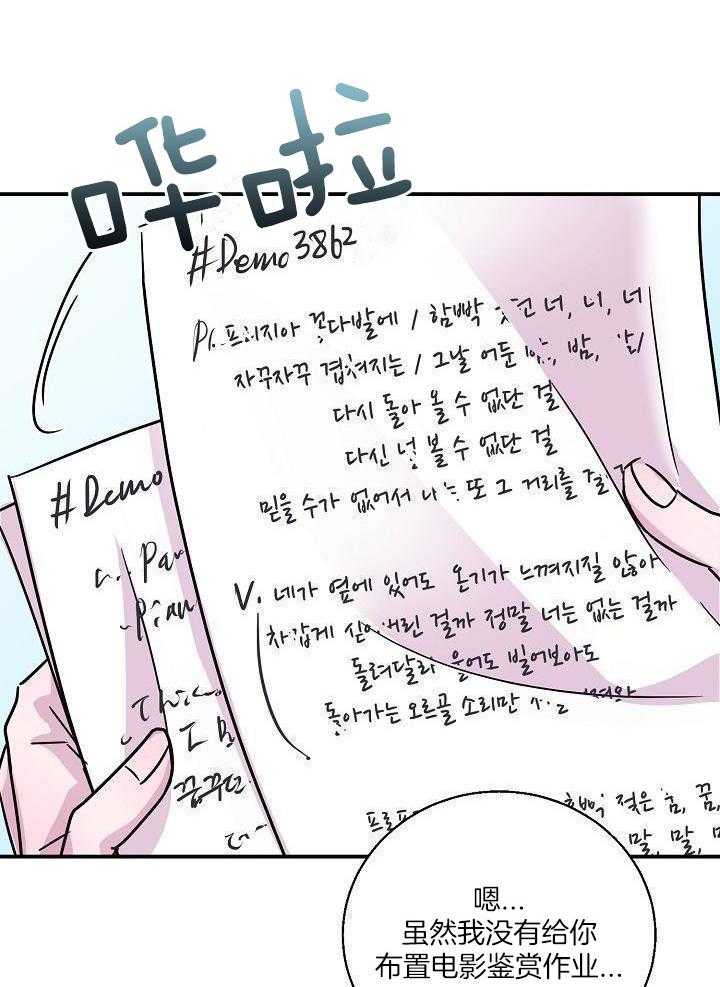 哗啦
#Demo 3862
Pr. 프리지아 꽃다발에 / 함빡 너, 너, 너
자꾸자꾸 겹쳐지는 / 그날 어둔 밤, 밤,
다시 돌아 올 수 없단 걸
다신 널 볼 수 없단 걸
믿을 수가 없어서 나는 또 그 거리를
#Demo
V. 네가 옆에 있어도 온기가 느껴지질 않아
차갑게 식어버린 걸까 정말 너는 없는 걸까
돌려달라 울어도 빌어보아도
돌아가는 오르골 소리만
I B
꿈꾸던
함빡 젖은 휴, 꿈,
말, 말,
嗯...
虽然我没有给你
布置电影鉴赏作业...